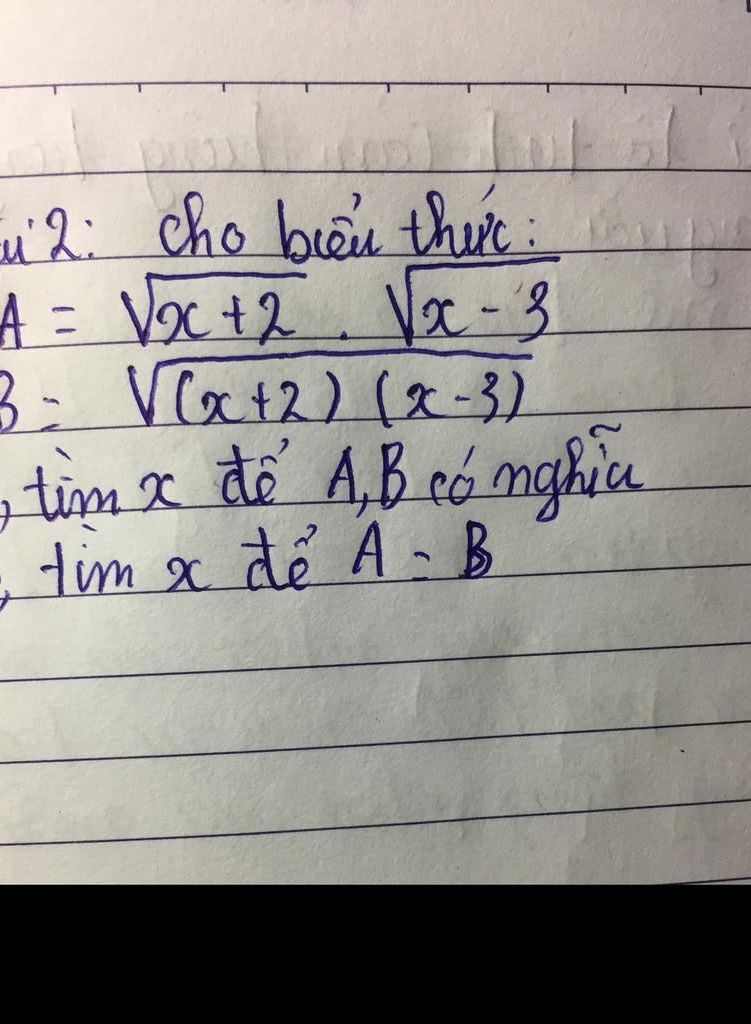 2: cho biểu thức:
A = √x+2 . √x-3
B = √(x+2) (x-3)
, tìm x để A,B có nghĩa
, tìm x để A = B